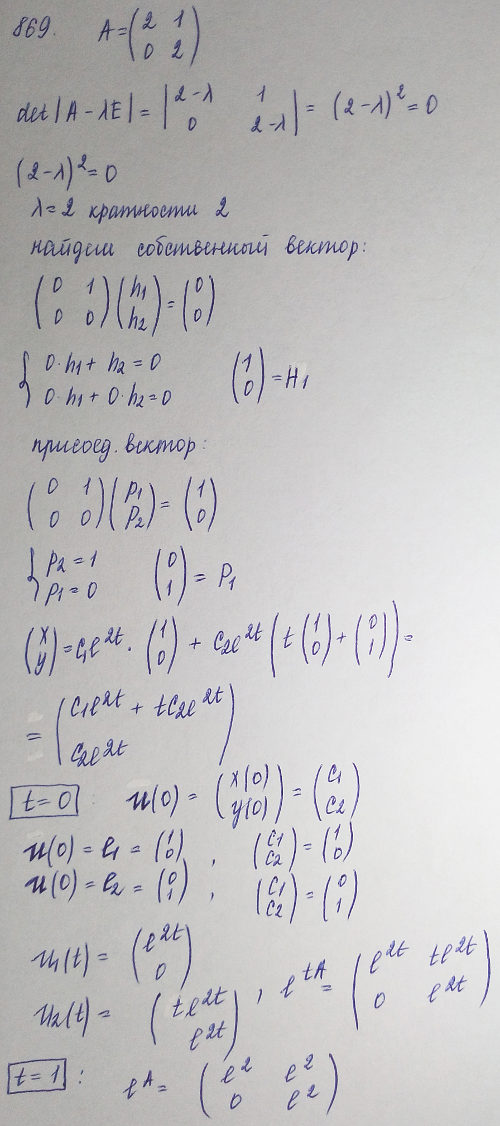 869. A = (2 1
0 2)
det|A - λE| = |2-λ 1
0 2-λ| = (2-λ)² = 0
(2-λ)² = 0
λ = 2 кратности 2
найдем собственный вектор:
(0 1
0 0) (h₁
h₂) = (0
0)
{0·h₁ + h₂ = 0
0·h₁ + 0·h₂ = 0 (1
0) = H₁
присоед. вектор:
(0 1
0 0) (p₁
p₂) = (1
0)
{p₂ = 1
p₁ = 0 (0
1) = P₁
(x
y) = c₁e^{2t} · (1
0) + c₂e^{2t} (t (1
0) + (0
1)) =
= (c₁e^{2t} + tc₂e^{2t}
c₂e^{2t})
t = 0 : u(0) = (x(0)
y(0)) = (c₁
c₂)
u(0) = e₁ = (1
0) , (c₁
c₂) = (1
0)
u(0) = e₂ = (0
1) , (c₁
c₂) = (0
1)
u₁(t) = (e^{2t}
0)
u₂(t) = (te^{2t}
e^{2t}) , e^{tA} = (e^{2t} te^{2t}
0 e^{2t})
t = 1 : e^A = (e² e²
0 e²)